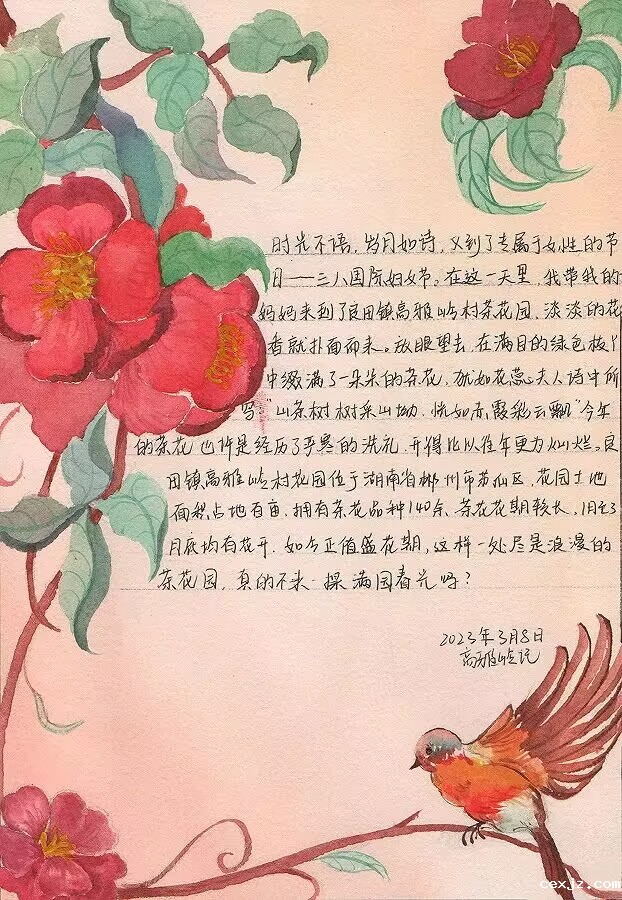 时光不语，岁月如诗，又到了专属于女性的节
日——三八国际妇女节。在这一天里，我带我的
妈妈来到了良田镇高雅岭村茶花园，淡淡的花
香就扑面而来。放眼望去，在满目的绿色枝丫
中缀满了一朵朵的茶花，犹如花蕊夫人诗中所
写："山茶树树采山坳，恍如赤霞彩云飘"今年
的茶花也许是经历了严寒的洗礼，开得比以往年更为灿烂。良
田镇高雅岭村花园位于湖南省郴州市苏仙区，花园土地
面积占地百亩，拥有茶花品种140余，茶花花期较长，1月至3
月底均有花开，如今正值盛花期，这样一处尽是浪漫的
茶花园，真的不来一探满园春光吗？
2023年3月8日
高雅岭记
cexjz.com